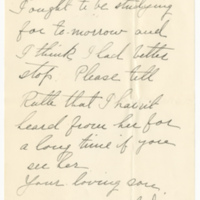 I ought to be studying
for to-morrow and
I think I had better
stop. Please tell
Ruth that I havn't
heard from her for
a long time if you
see her.
Your loving son,